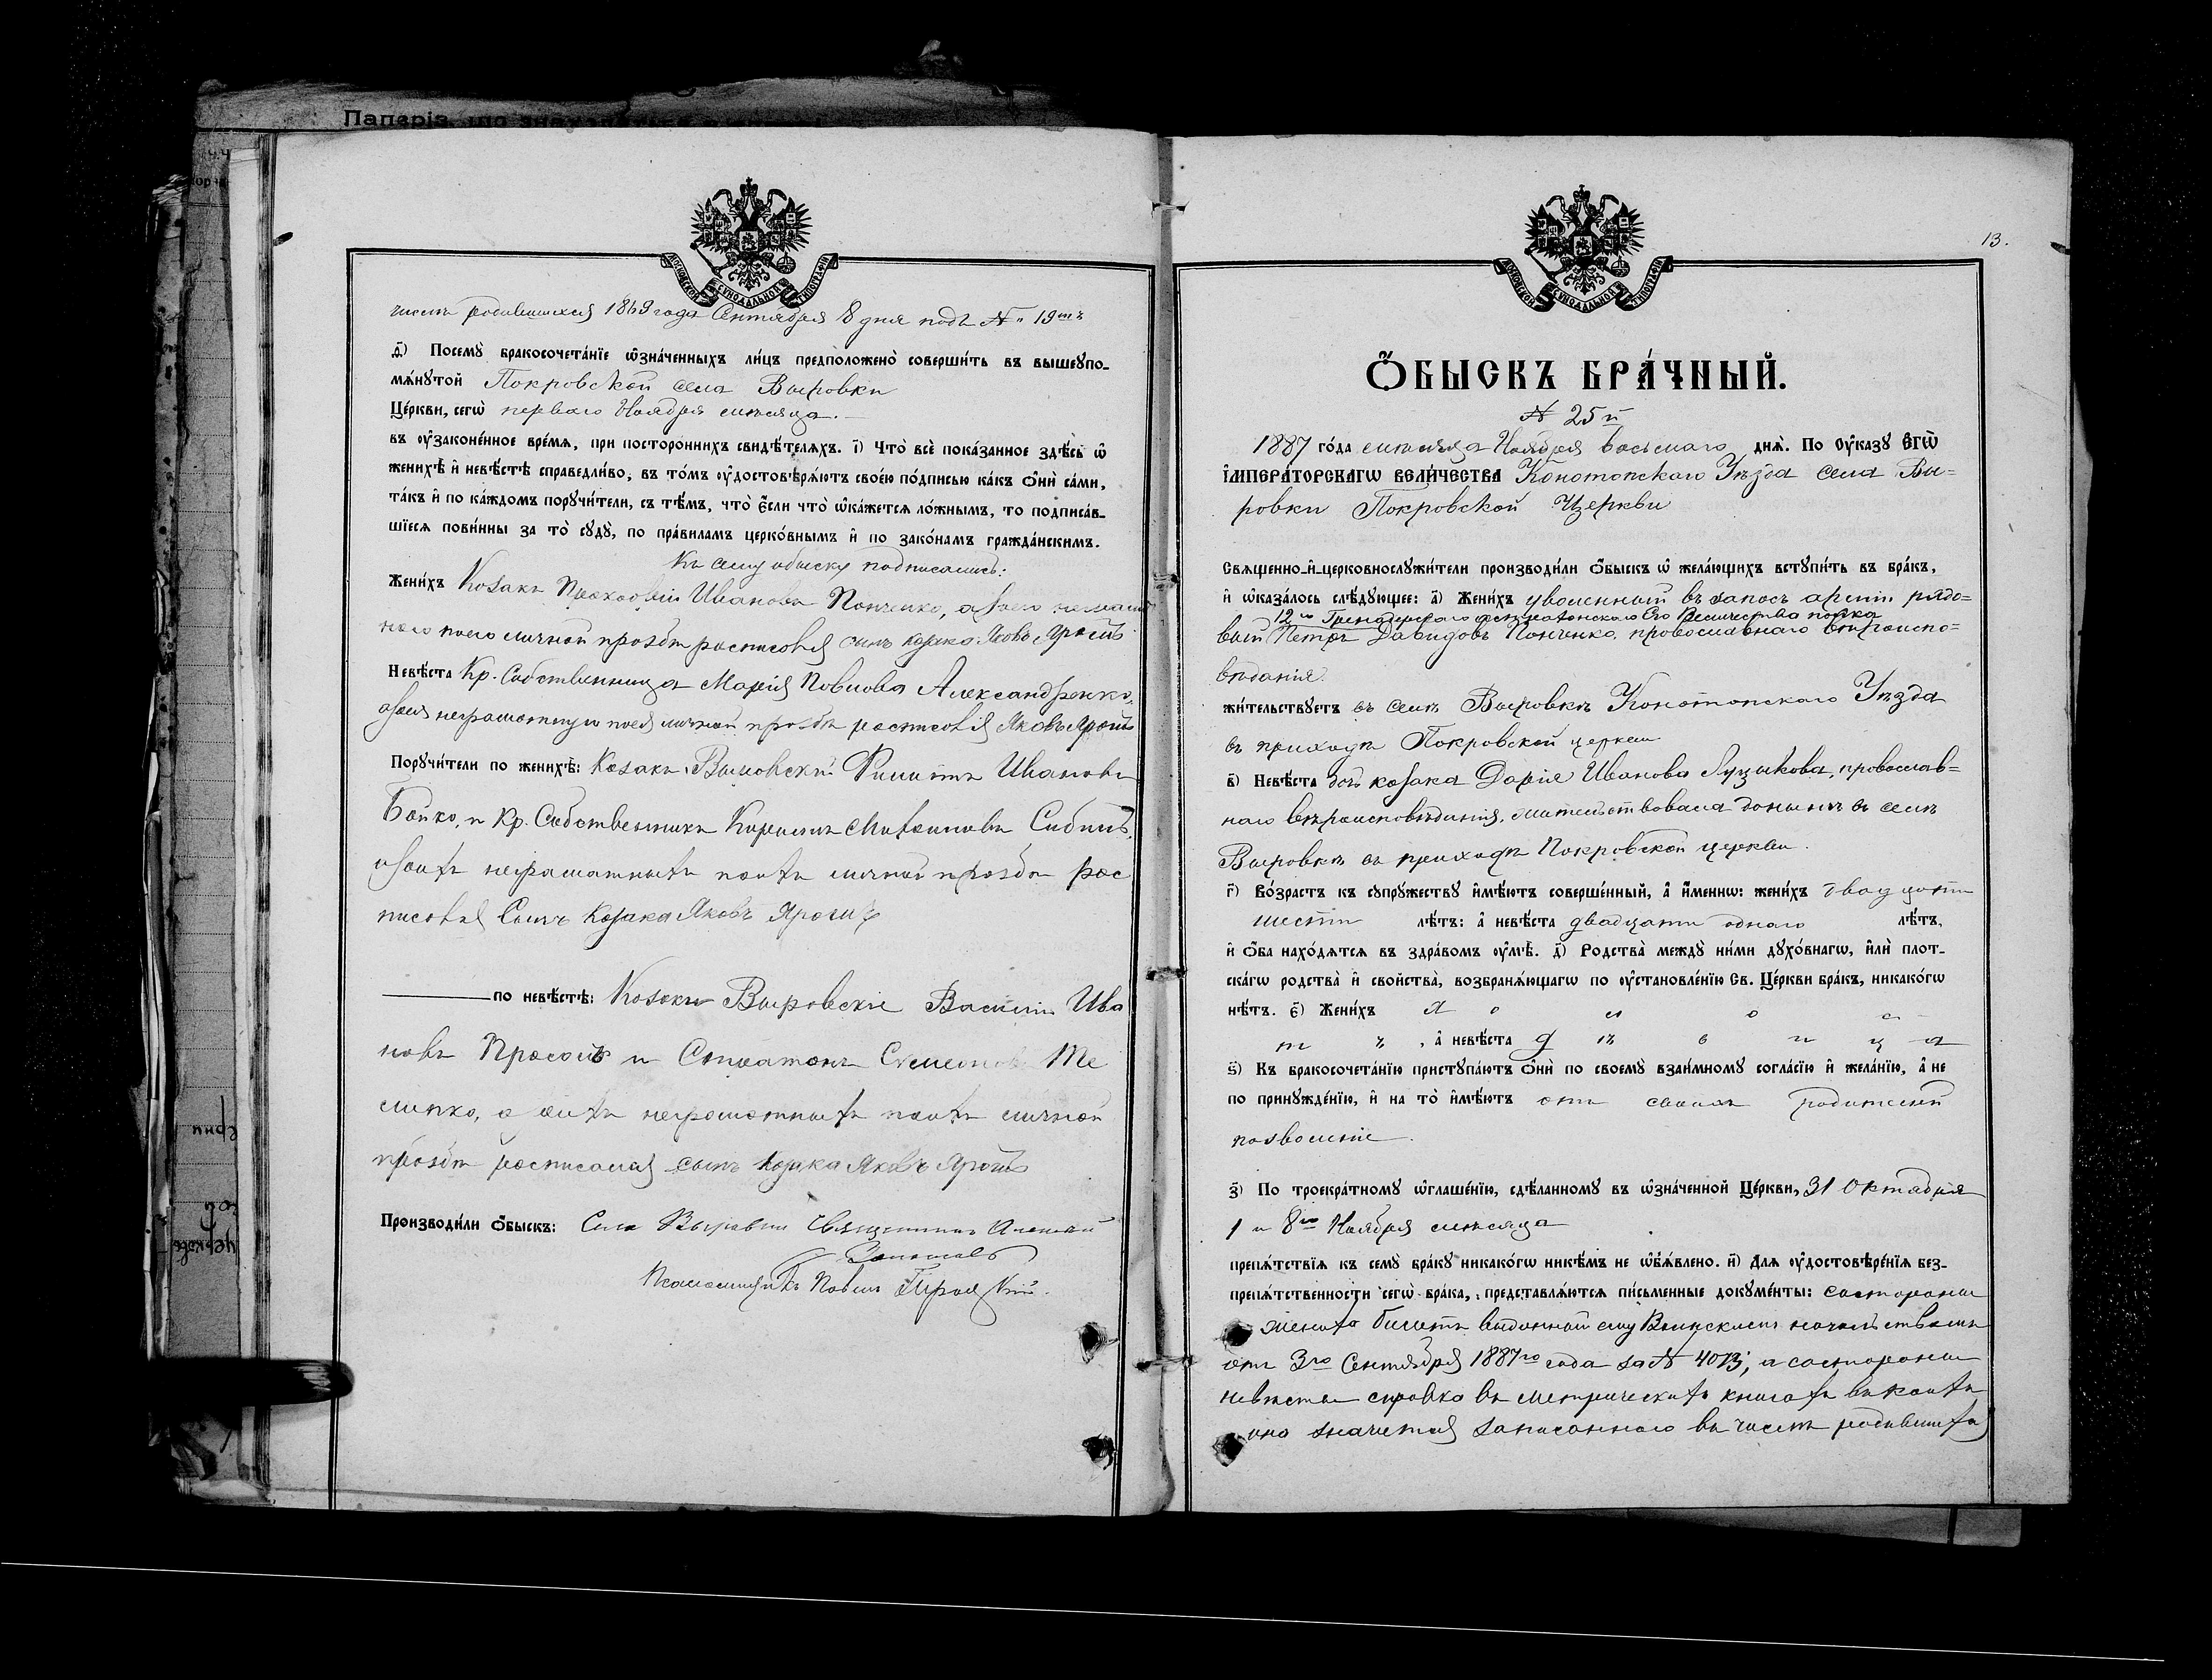 Папэріз, що знаходяться
МОСКОВСКОЙ СѴНОДАЛЬНОЙ ТИПОГРАФІИ
числѣ родившихся 1869 года Сентября 8 дня подъ № 19мъ
д҃) Посемꙋ̀ бракосочета́нїе ѡ҆зна́ченныхъ ли́цъ предположено̀ соверши́ть въ вышеꙋпо-
мѧ́нꙋтой Покровской села Выровки
Це́ркви, сегѡ̀ перваго Ноября мѣсяца.
въ ᲂу҆законе́нное вре́мѧ, при посторо́ннихъ свидѣ́телѧхъ. і҃) Что̀ всѐ пока́занное здѣ́сь ѡ҆
женихѣ̀ и҆ невѣ́стѣ справедли́во, въ то́мъ ᲂу҆достовѣрѧ́ютъ свое́ю по́дписью ка́къ ѻ҆нѝ са́ми,
та́къ и҆ по ка́ждомъ порꙋчи́тели, съ тѣ́мъ, что̀ є҆́сли что̀ ѡ҆ка́жется ло́жнымъ, то подписа́в-
шїеся пови́нны за то̀ сꙋдꙋ̀, по пра́виламъ церко́внымъ и҆ по зако́намъ гражда́нскимъ.
Къ сему обыску подписались:
Жени́хъ Козакъ Прокофій Ивановъ Понченко, а за него неграмот
наго по его личной прозбѣ росписовся сынъ козака Яковъ Ярошъ
Невѣ́ста Кр. Собственница Марія Повлова Александренко,
а за ея неграмотную по ея личной прозбѣ росписовся Яковъ Ярошъ
Порꙋчи́тели по женихѣ̀: Козакъ Выровскій Филипъ Ивановъ
Бойко, и Кр. Собственникъ
а за ихъ неграмотныхъ по ихъ личной прозбѣ рос
писовся Сынъ Козака Яковъ Ярошъ
по невѣ́стѣ: Козоки Выровскіе Василій Ива
новъ и Семеоновъ Те
а за ихъ неграмотныхъ по ихъ личной
прозбѣ росписался сынъ козака Яковъ Ярошъ
Производи́ли ѻ҆́быскъ: Села Выровки Священникъ Алексій
Псаломщикъ Повелъ
13.
МОСКОВСКОЙ СѴНОДАЛЬНОЙ ТИПОГРАФІИ
Ѻ҆́БЫСКЪ БРА́ЧНЫЙ.
№ 25й
1887 го́да мѣсяца Ноября восьмаго днѧ̀. По ᲂу҆ка́зꙋ Є҆гѡ̀
І҆МПЕРА́ТОРСКАГѠ ВЕЛИ́ЧЕСТВА Конотопскаго Уѣзда села Вы=
ровки Покровской Церкви
Свѧще́нно-и҆-церковнослꙋжи́тели производи́ли ѻ҆́быскъ ѡ҆ жела́ющихъ встꙋпи́ть въ бра́къ,
и҆ ѡ҆каза́лось слѣ́дꙋющее: а҃) Жени́хъ уволенный въ запосъ арміи рядо=
12го Гренадерскаго Астраханскаго Его Величества полка
вый Петръ Давидовъ Понченко, провославнаго вѣроиспо=
вѣданія.
жи́тельствꙋетъ въ селѣ Выровкѣ Конотопскаго Уѣзда
въ приходѣ Покровской церкви
в҃) Невѣ́ста дочь козака Дарія Иванова Луцикова, провослав=
наго вѣроисповѣданія, жительствовала донынѣ въ селѣ
Выровкѣ въ приходѣ Покровской церкви.
г҃) Во́зрастъ къ сꙋпрꙋ́жествꙋ и҆мѣ́ютъ соверше́нный, а҆ и҆́меннѡ: жени́хъ двадцати
шести лѣ́тъ: а҆ невѣ́ста двадцати одного лѣ́тъ,
и҆ ѻ҆́ба нахо́дѧтся въ здра́вомъ ᲂу҆мѣ̀. д҃) Родства̀ междꙋ̀ ни́ми дꙋхо́внагѡ, и҆лѝ плот-
ска́гѡ родства̀ и҆ свойства̀, возбранѧ́ющагѡ по ᲂу҆становле́нїю Св. Це́ркви бра́къ, никако́гѡ
нѣ́тъ. є҃) Жени́хъ х о л о с
т ъ , а҆ невѣ́ста д ѣ в и ц а
ѕ҃) Къ бракосочета́нїю пристꙋпа́ютъ ѻ҆нѝ по своемꙋ̀ взаи́мномꙋ согла́сїю и҆ жела́нїю, а҆ не
по принꙋжде́нїю, и҆ на то̀ и҆мѣ́ютъ отъ своихъ родителей
позволеніе.
з҃) По троекра́тномꙋ ѡ҆глаше́нїю, сдѣ́ланномꙋ въ ѡ҆зна́ченной Це́ркви, 31 Октября
1 и 8го Ноября мѣсяца
препѧ́тствїѧ къ семꙋ̀ бра́кꙋ никако́гѡ никѣ́мъ не ѡ҆б̾ѧ́влено. и҃) Длѧ ᲂу҆достовѣре́нїѧ без-
препѧ́тственности сегѡ̀ бра́ка, представлѧ́ются пи́сьменные докꙋме́нты: состороны
жениха билетъ выданный ему Воинскимъ начальствомъ
отъ 3го Сентября 1887го года за № 4013; а состороны
невѣсты справка въ метрическихъ книгахъ въ коихъ
она значется записанною въ числѣ родившихся